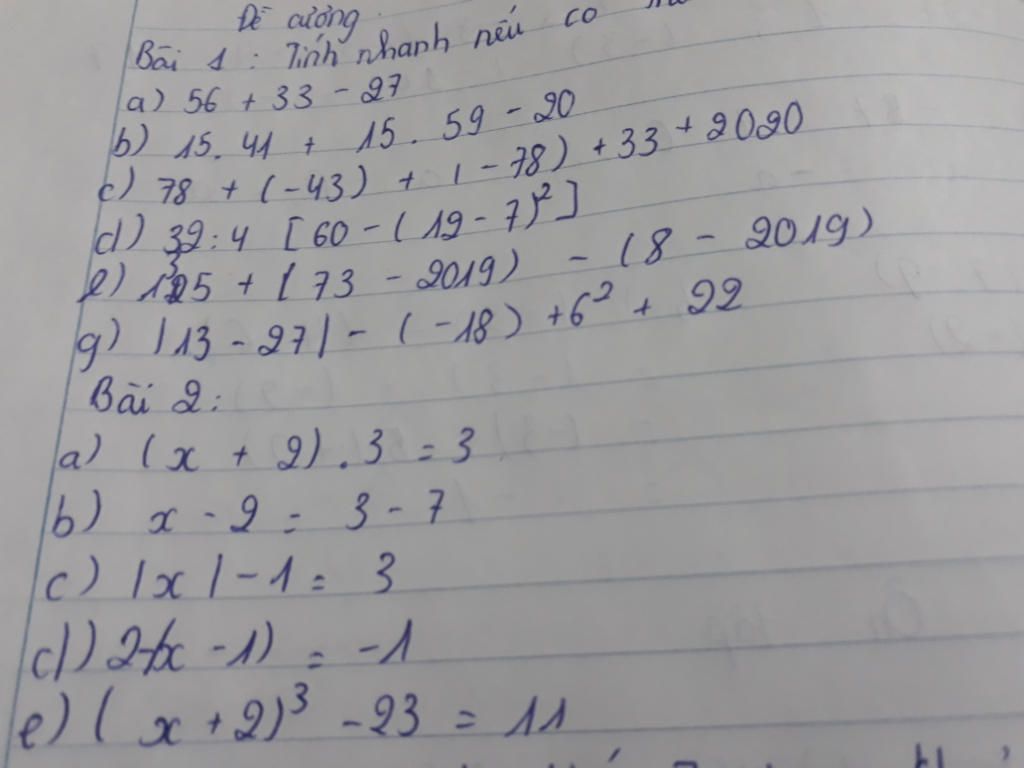 Đề cương
Bài 1 : Tính nhanh nếu có
a) 56 + 33 - 27
b) 15.41 + 15.59 - 20
c) 78 + (-43) + (-78) + 33 + 2020
d) 32:4 [60 - (12 - 7)²]
e) + (73 - 2019) - (8 - 2019)
g) |13 - 27| - (-18) + 6² + 22
Bài 2:
a) (x + 2).3 = 3
b) x - 2 = 3 - 7
c) |x| - 1 = 3
d) 2-(x - 1) = -1
e) (x + 2)³ - 23 = 11